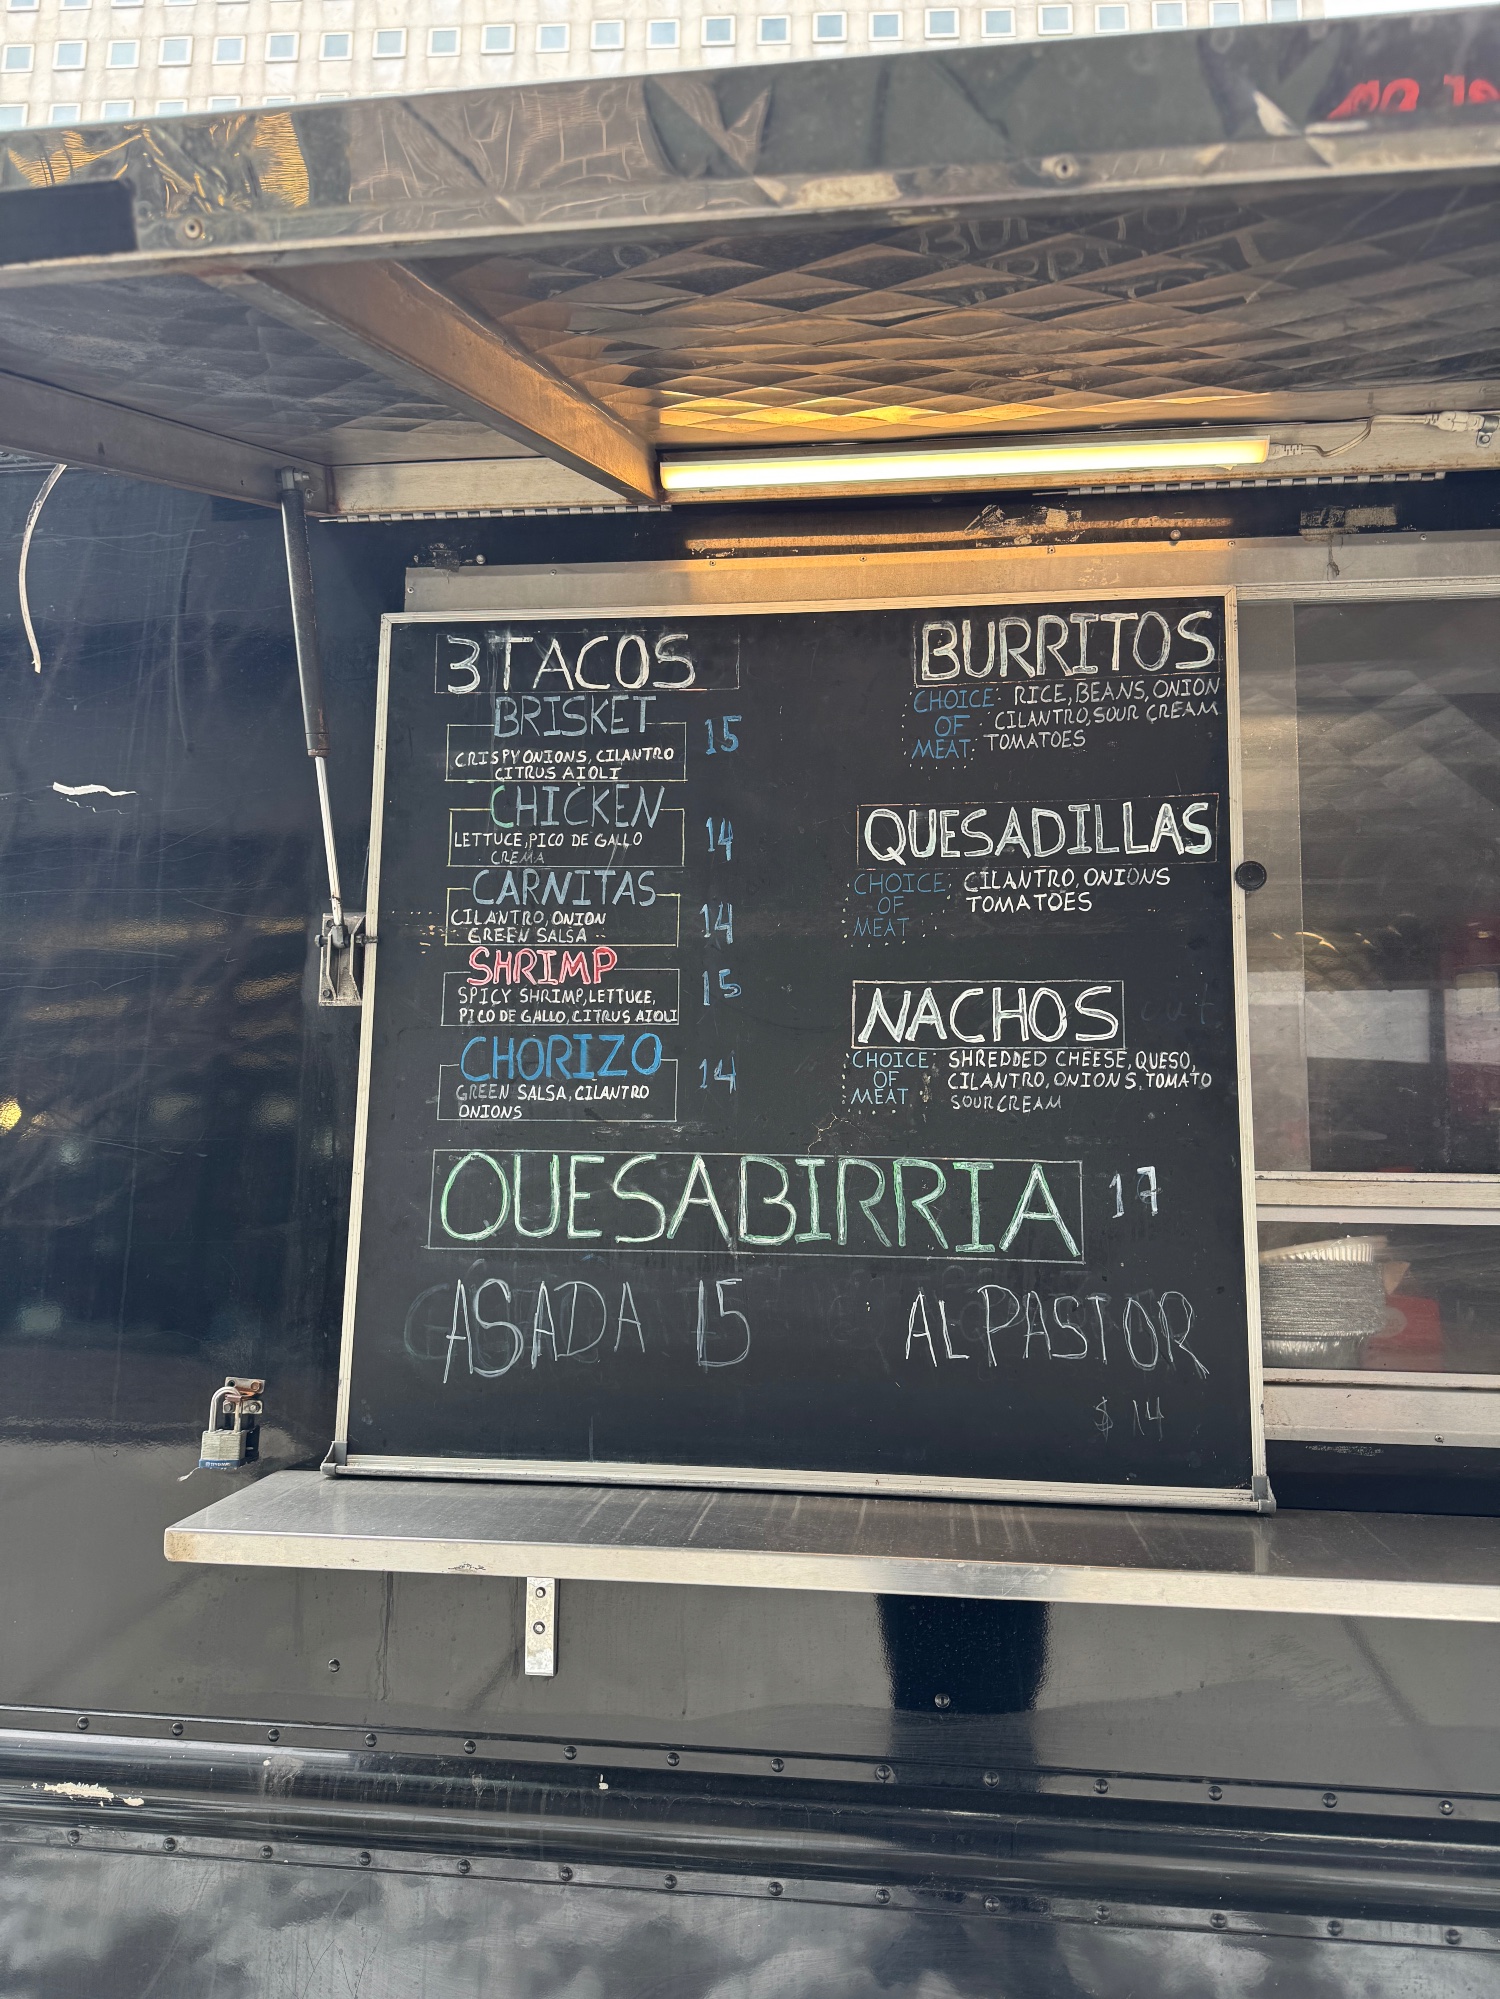 3 TACOS
BRISKET
15
CRISPY ONIONS, CILANTRO
CITRUS AIOLI
CHICKEN
14
LETTUCE, PICO DE GALLO
CREMA
CARNITAS
14
CILANTRO, ONION
GREEN SALSA
SHRIMP
15
SPICY SHRIMP, LETTUCE,
PICO DE GALLO, CITRUS AIOLI
CHORIZO
14
GREEN SALSA, CILANTRO
ONIONS
BURRITOS
CHOICE: RICE, BEANS, ONION
OF CILANTRO, SOUR CREAM
MEAT: TOMATOES
QUESADILLAS
CHOICE: CILANTRO, ONIONS
OF TOMATOES
MEAT
NACHOS
CHOICE: SHREDDED CHEESE, QUESO,
OF CILANTRO, ONIONS, TOMATO
MEAT SOUR CREAM
QUESABIRRIA 17
ASADA 15
AL PASTOR
$ 14